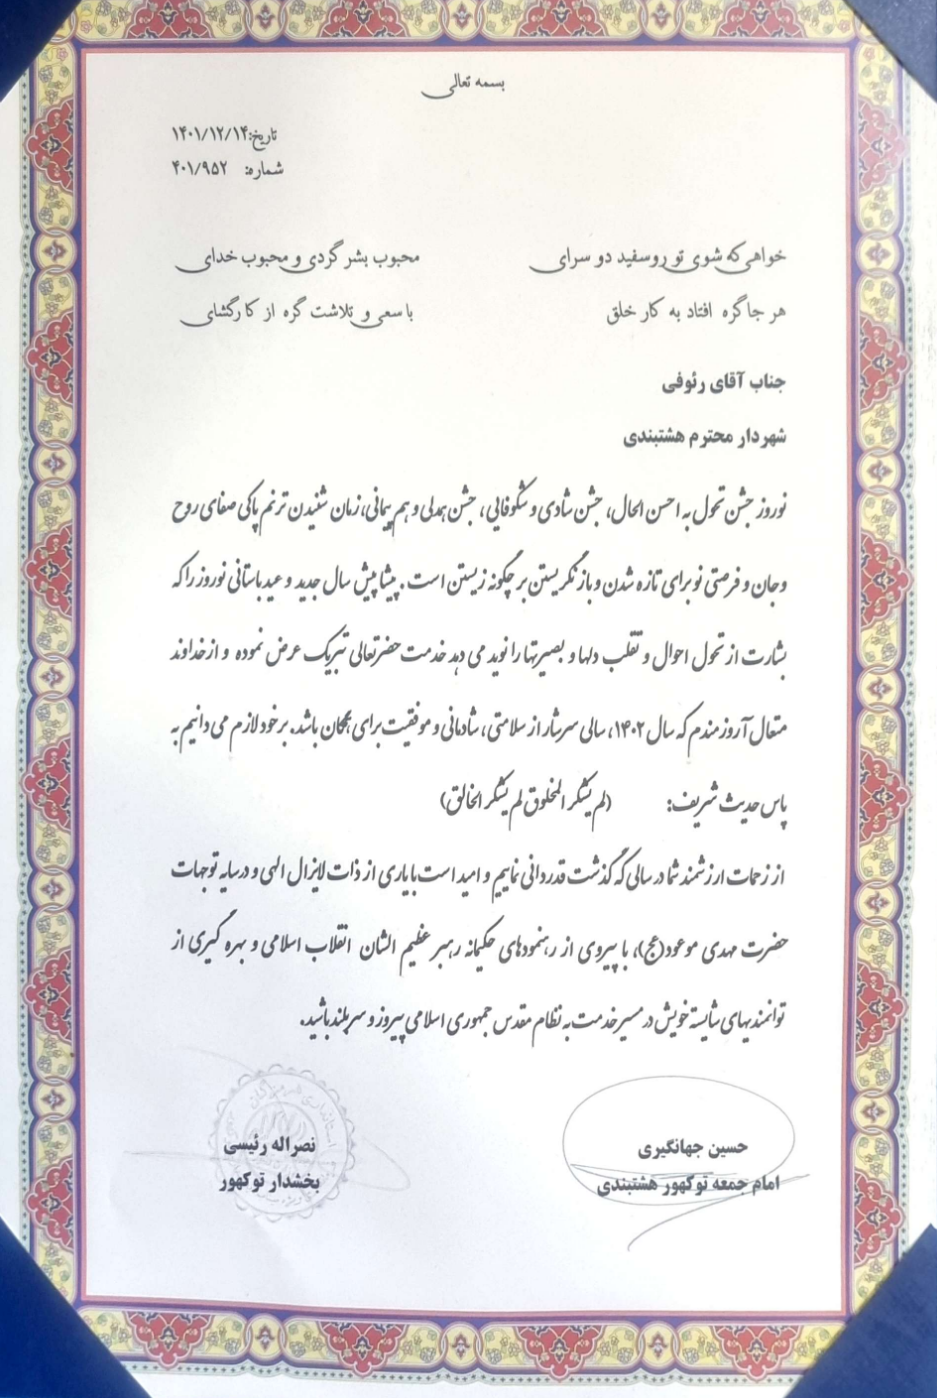 بسمه تعالی
تاریخ:۱۴۰۱/۱۲/۱۴
شماره: ۴۰۱/۹۵۲
خواهی که شوی تو روسفید دو سرای محبوب بشر گردی و محبوب خدای
هر جا گره افتاد به کار خلق با سعی و تلاشت گره از کار گشای
جناب آقای رئوفی
شهردار محترم هشتبندی
نوروز جشن تحول به احسن الحال، جشن شادی و شکوفایی، جشن همدلی و هم پیمانی، زمان شنیدن ترنم پاکی صفای روح
و جان و فرصتی نو برای تازه شدن و باز نگریستن بر چگونه زیستن است. پیشاپیش سال جدید و عید باستانی نوروز را که
بشارت از تحول احوال و تقلب دلها و بصیرتها را نوید می دهد خدمت حضرتعالی تبریک عرض نموده و از خداوند
متعال آرزومندم که سال ۱۴۰۲، سالی سرشار از سلامتی، شادمانی و موفقیت برای همگان باشد. بر خود لازم می دانیم به
پاس حدیث شریف: (لم یشکر المخلوق لم یشکر الخالق)
از زحمات ارزشمند شما در سالی که گذشت قدردانی نماییم و امید است با یاری از ذات لایزال الهی و در سایه توجهات
حضرت مهدی موعود(عج)، با پیروی از رهنمودهای حکیمانه رهبر عظیم الشان انقلاب اسلامی و بهره گیری از
توانمندیهای شایسته خویش در مسیر خدمت به نظام مقدس جمهوری اسلامی پیروز و سربلند باشید.
حسین جهانگیری
امام جمعه توکهور هشتبندی
نصراله رئیسی
بخشدار توکهور